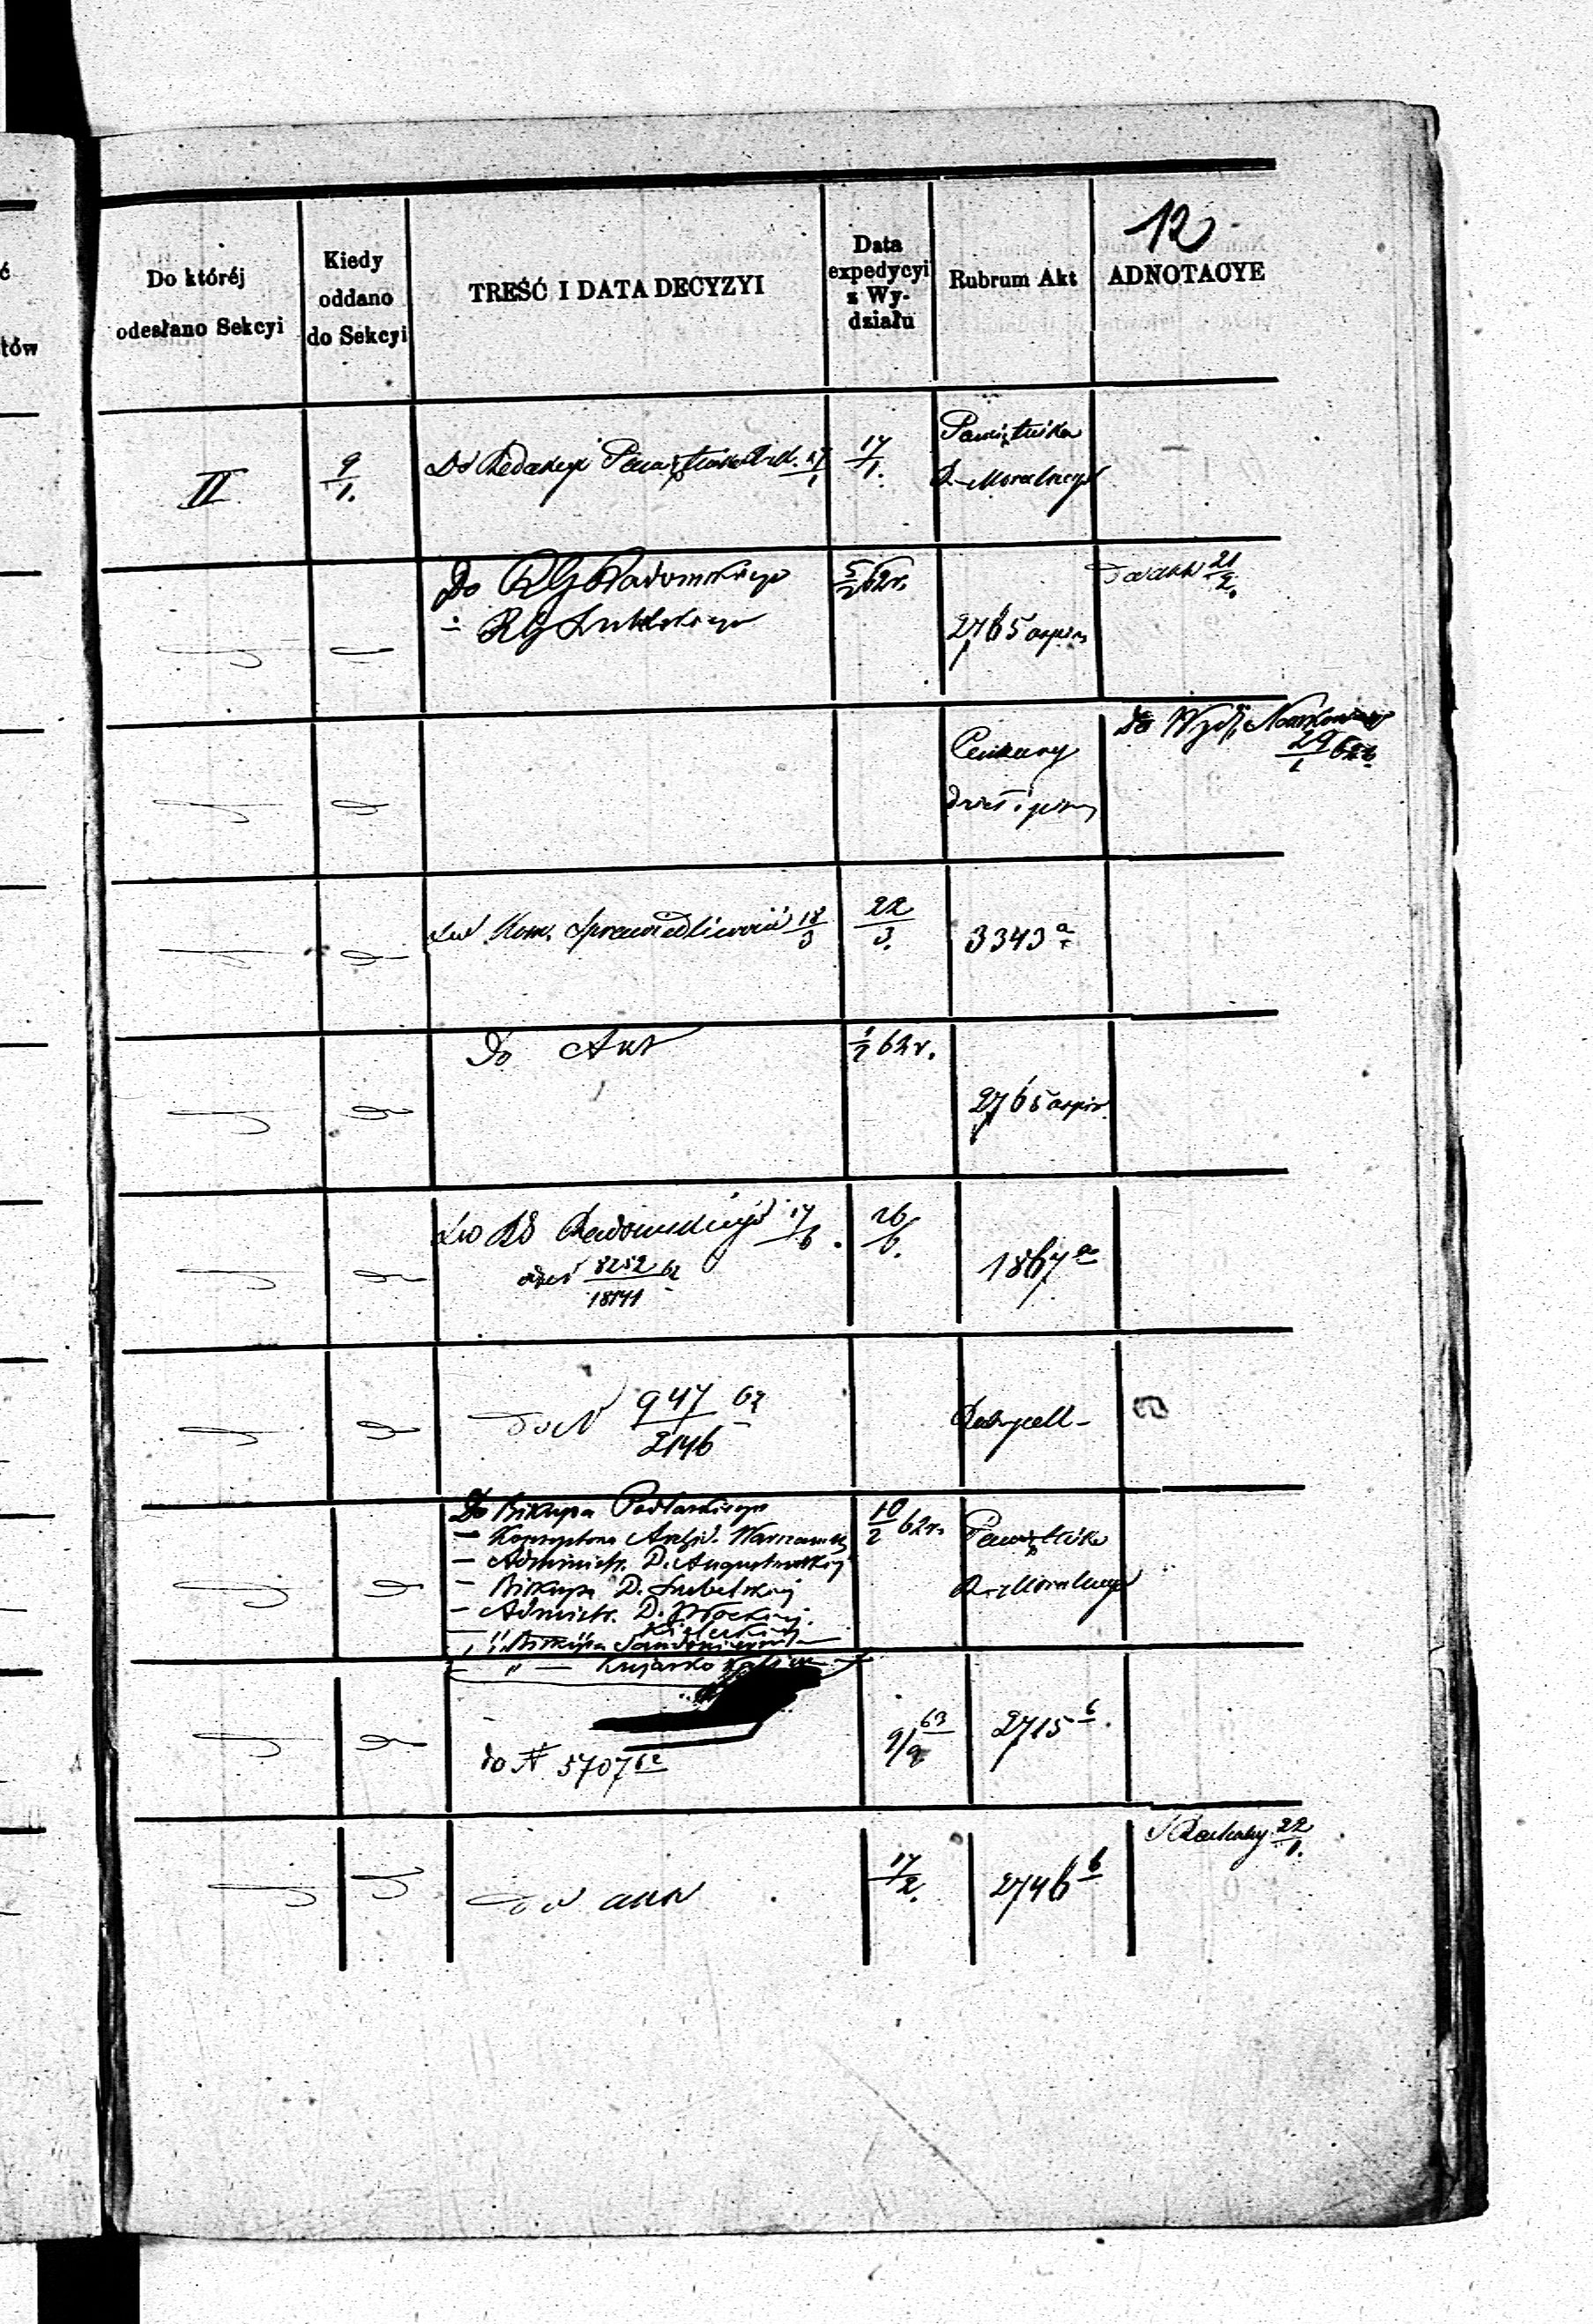 12
Do któréj
odesłano Sekcyi
Kiedy
oddano
do Sekcyi
TREŚĆ I DATA DECYZYI
Data
expedycyi
z Wy-
działu
Rubrum Akt
ADNOTACYE
ć
tów
II
9/1.
Do Redakcyi Pamiętnika
17/1.
Pamiętnika
R. Moralnego
Do RG Radomskiego
- RG Lubelskiego
5/2 62 r.
2765
do akt 21/2.
Cenzury
dzieł i pism
do Wydz. Naukowego
29/1 62
do Kom. Sprawiedliwości 18/3
22/3.
3343 a
Do Akt
1/2 62 r.
2765
do RG Radomskiego 17/6.
8252/18141 62
26/6.
1867 a
do N 947/2146 62
Do Biskupa Podlaskiego
- Konsystorza Archid. Warszaws.
- Administr. D. Augustowskiej
- Biskupa D. Lubelskiej
- Administr. D. Płockiej.
Kieleckiej
Biskupa Sandomiers
" - Kujawsko Kalis
10/2 62 r.
Pamiętnika
R. Moralnego
do N 5707 62
9/9 63
2715 b.
do akt
17/2.
2746 b
22/1.